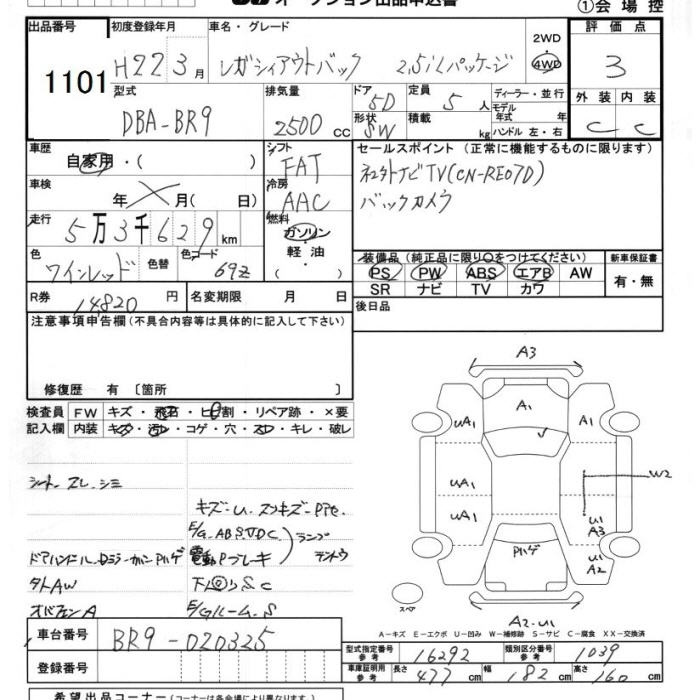 オークション出品申込書
①会場控
出品番号 初度登録年月 車名・グレード 評価点
1101 H22 3月 レガシィアウトバック 2.5iLパッケージ 2WD 4WD 3
型式 排気量 ドア 5D 定員 5人 ディーラー・並行 外装 内装
DBA-BR9 2500cc 形状 SW 積載 kg モデル年式 年式 ハンドル 左・右 C C
車歴 自家用・( ) シフト FAT セールスポイント (正常に機能するものに限ります)
車検 年 月( 日) 冷房 AAC 社外ナビTV(CN-RE07D)
バックカメラ
走行 5万3千629km 燃料 ガソリン・軽油・( )
色 ワインレッド 色替 色コード 69Z
装備品 (純正品に限り○をつけてください) 新車保証書
PS PW ABS エアB AW 有・無
SR ナビ TV カワ
R券 14,820円 名変期限 月 日 後日品
注意事項申告欄 (不具合内容等は具体的に記入して下さい)
修復歴 有 〔箇所 〕
検査員 FW キズ・飛石・ヒビ割・リペア跡・×要
記入欄 内装 キズ・汚レ・コゲ・穴・スレ・キレ・破レ
シート スレ、シミ
キズ・U、スリキズ・Pﾊゲ
E/G、ABS、VDC
電動Pブレーキ
ランプ
テントウ
ドアハンドル、Dミラーカバー Pハゲ
タトAW 下回りS C
E/Gルーム、S
A3
A1
UA1 A1
UA1 W2
UA1 U1 A3
Pハゲ U1 A2
スペア
A2-U1
A-キズ E-エクボ U-凹み W-補修跡 S-サビ C-腐食 XX-交換済
車台番号 BR9-020325
登録番号
型式指定番号 参考 16292 類別区分番号 参考 1039
車庫証明用 参考 長さ 477cm 幅 182cm 高さ 160cm
希望出品コーナー (コーナーは各会場により